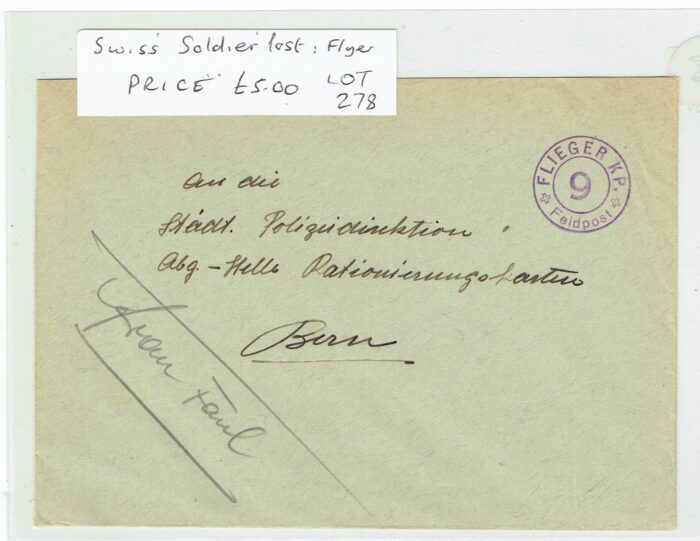 Swiss Soldier Post: Flyer
PRICE £5.00 LOT
278
FLIEGER KP.
9
Feldpost
An die
Städt. Polizeidirektion
Abg-Stelle Rationierungskarten
Bern
Frau